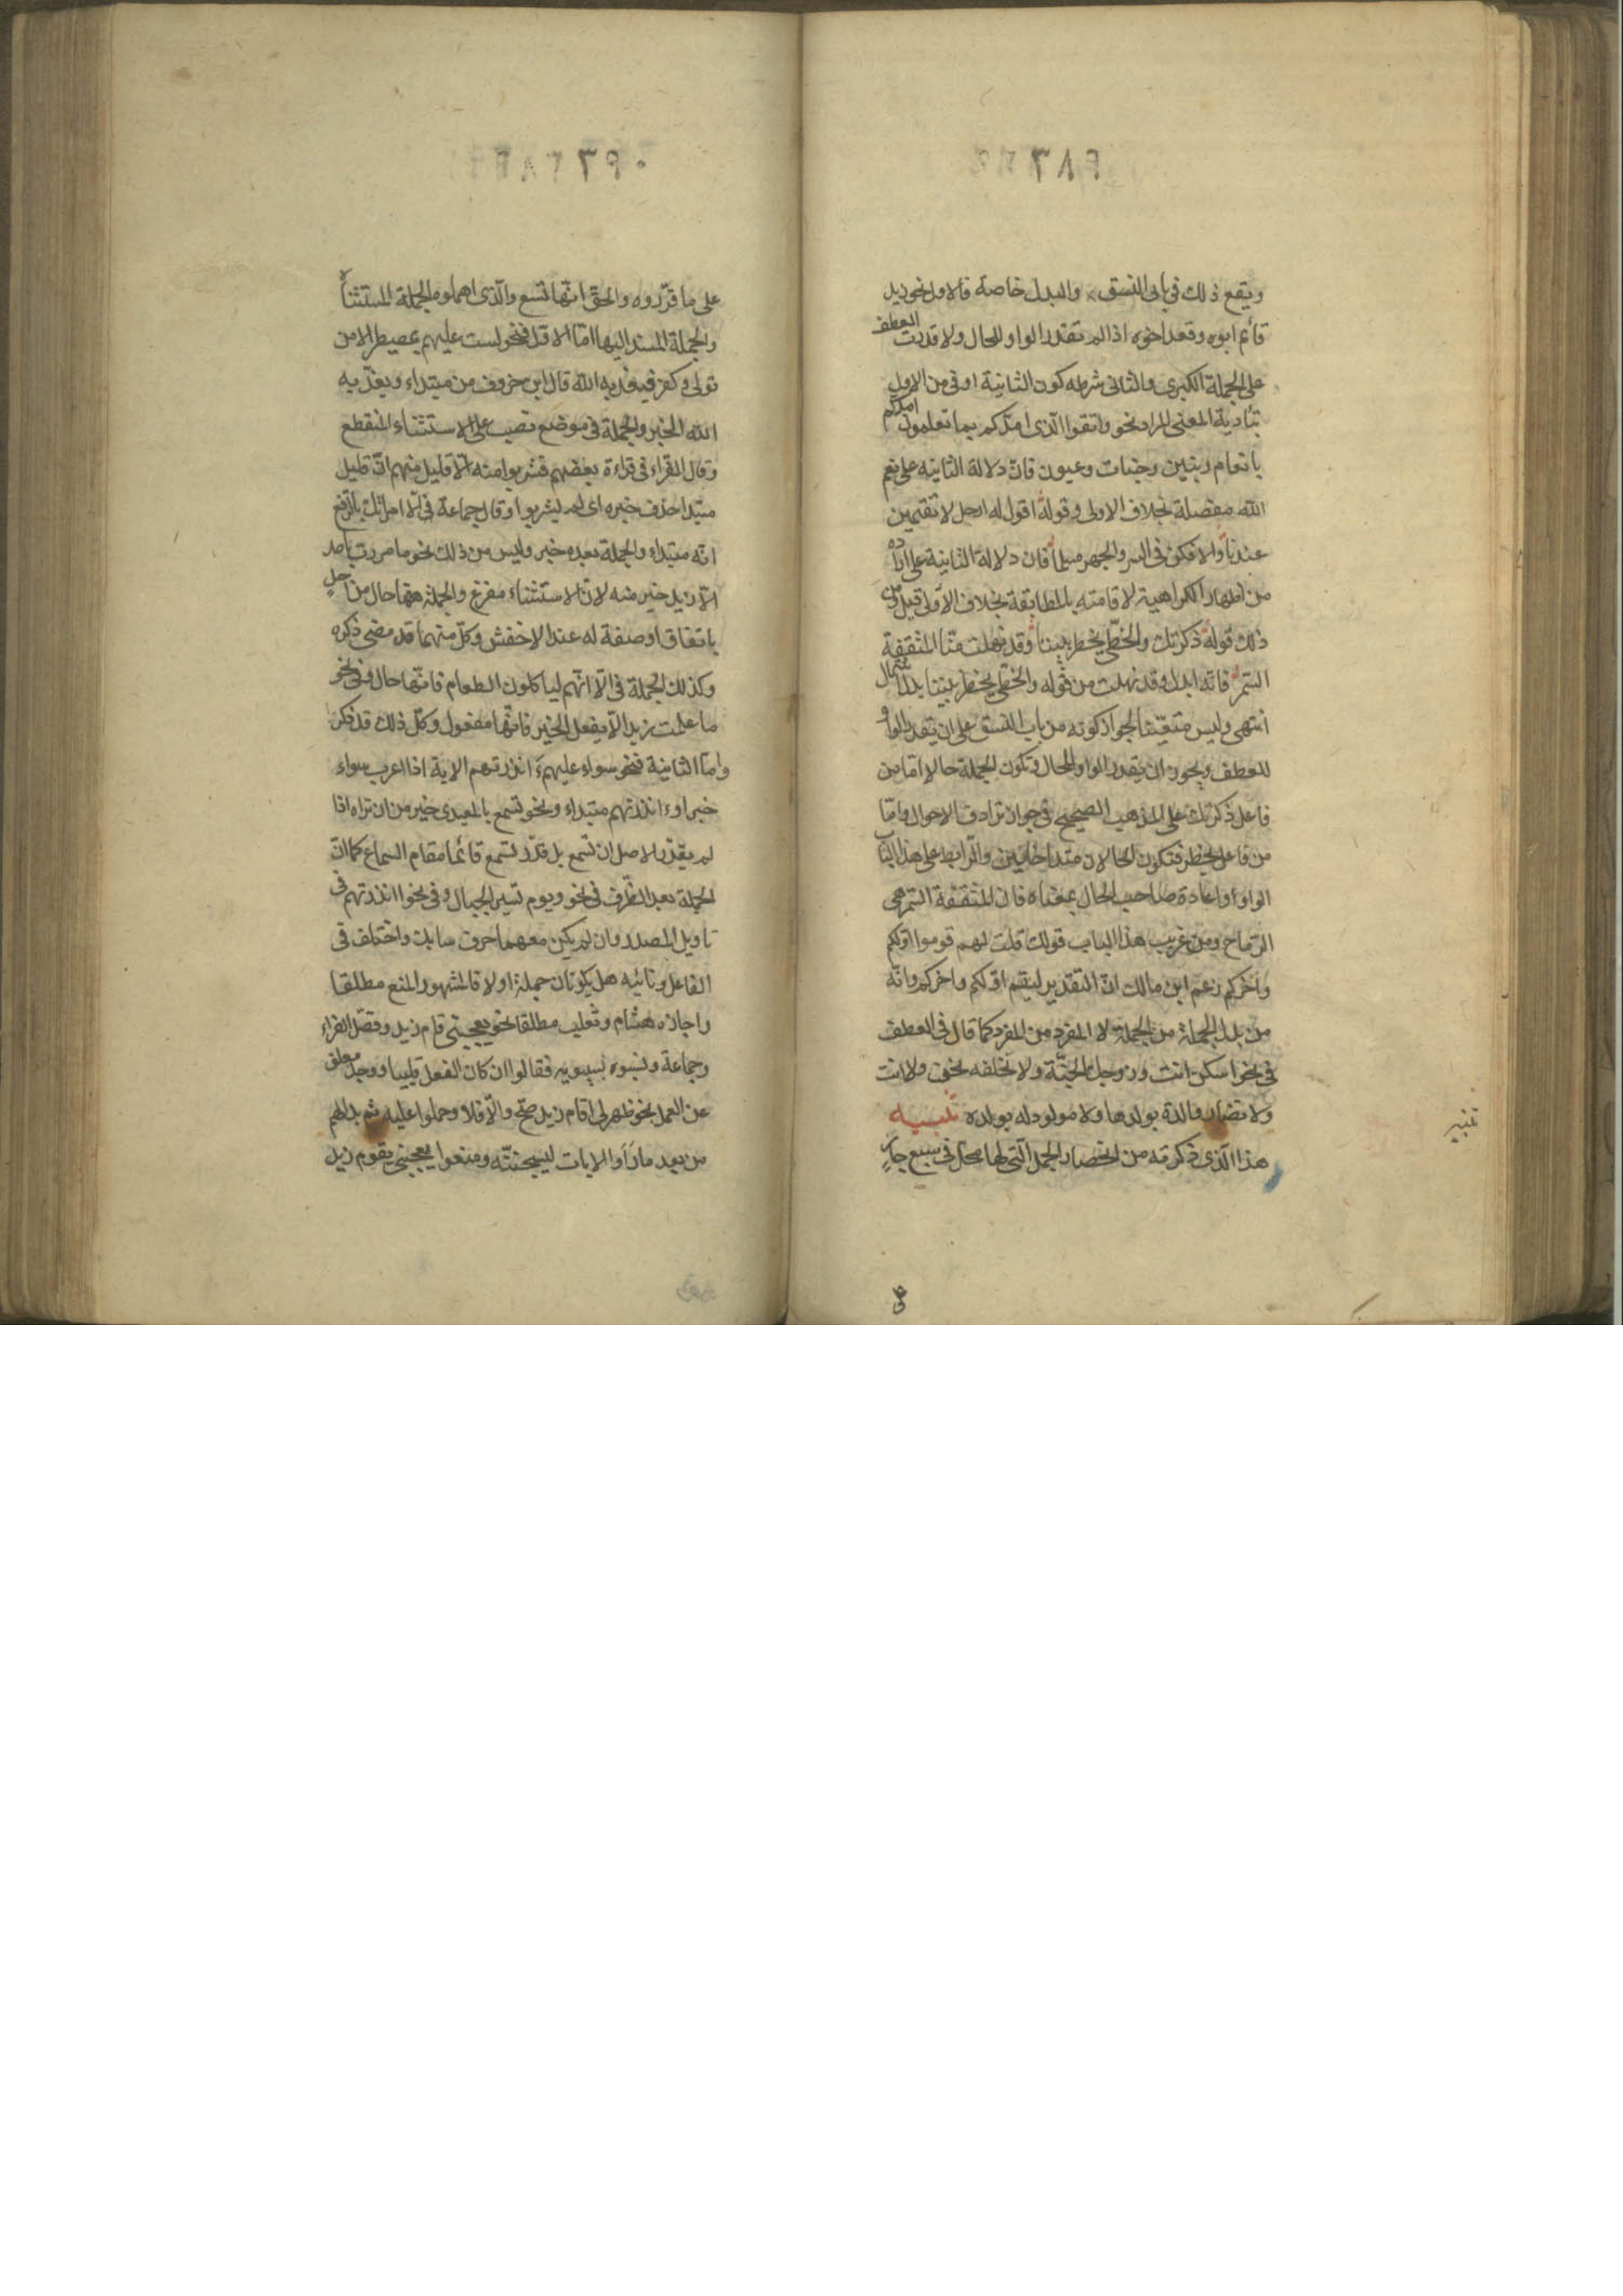 ويقع ذلك فى بابى النسق والبدل خاصة فالاول نحو زيد
قائم ابوه وقعد اخوه اذا لم تقدر الواو للحال ولا قدرت العطف
على الجملة الكبرى والثانى شرطه كون الثانية اوفى من الاولى
بتأدية المعنى المراد نحو واتقوا الذى امدكم بما تعلمون امدكم
بانعام وبنين وجنات وعيون فان دلالة الثانيه على نعم
الله مفصلة بخلاف الاولى وقوله اقول له ارحل لا تقيمن
عندنا والا فكن فى السر والجهر مسلما فان دلالة الثانية على اراده
من اظهار الكراهية لاقامته بالمطابقة بخلاف الاولى قيل ومن
ذلك قوله ذكرتك والخطّى يخطر بيننا وقد نهلت منّا المثقفة
السّمر فانّه ابدل وقد نهلت من قوله والخطى يخطر بيننا بدل اشتمال
انتهى وليس متعيّنا لجواز كونه من باب النسق على ان تقدر الواو
للعطف ويجوز ان يقدر الواو للحال وتكون الجملة حالا اما من
فاعل ذكرتك على المذهب الصحيح فى جواز ترادف الاحوال وامّا
من فاعل يخطر فتكون الحالان متداخلتين والرابط على هذا الثانى
الواو او اعادة صاحب الحال بمعناه فان المثقفة السّمر هى
الرّماح ومن غريب هذا الباب قولك قلت لهم قوموا اوّلكم
واخركم زعم ابن مالك انّ التقدير ليقم اوّلكم واخركم وانّه
من بدل الجملة من الجملة لا المفرد من المفرد كما قال فى العطف
فى نحو اسكن انت وزوجك الجنّة ولا نخلفه نحن ولا انت
ولا تضار والدة بولدها ولا مولود له بولده تنبيه
هذا الّذى ذكرته من انحصار الجمل الّتى لها محل فى سبع جار
تنبيه
على ما قرّروه والحقّ انّها تسع والّذى اهملوه الجملة المستثناة
والجملة المسند اليها امّا الاولى فنحو لست عليهم بمصيطر الا من
تولى وكفر فيعذبه الله قال ابن خروف من مبتداء ويعذّبه
الله الخبر والجملة فى موضع نصب على الاستثناء المنقطع
وقال الفراء فى قراءة بعضهم فشربوا منه الّا قليل منهم انّ قليل
مبتدا حذف خبره اى لم يشربوا وقال جماعة فى الّا امراتك بالرفع
انّه مبتداء والجملة بعده خبر وليس من ذلك نحو ما مررت باحد
الّا زيد خير منه لانّ الاستثناء مفرغ والجملة هنا حال من احد
باتفاق او صفة له عند الاخفش وكل منهما قد مضى ذكره
وكذلك الجملة فى الّا انّهم لياكلون الطعام فانّها حال وفى نحو
ما علمت زيدا الّا يفعل الخير فانّها مفعول وكلّ ذلك قد ذكر
وامّا الثانية فنحو سواء عليهم ءانذرتهم الاية اذا اعرب سواء
خبرا وءانذرتهم مبتداء ونحو تسمع بالمعيدى خير من ان تراه اذا
لم يقدّر الاصل ان تسمع بل قدّر تسمع قائما مقام السماع كما انّ
الجملة بعد الظّرف فى نحو ويوم تسير الجبال وفى نحو ءانذرتهم فى
تاويل المصدر وان لم يكن معهما حرف سابك واختلف فى
الفاعل ونائبه هل يكونان جملة او لا فالمشهور المنع مطلقا
واجازه هشام وثعلب مطلقا نحو يعجبنى قام زيد وفصّل الفراء
وجماعة ونسبوه لسيبويه فقالوا ان كان الفعل قلبيا ووجد معلق
عن العمل نحو ظهر لى اقام زيد صحّ والّا فلا وحملوا عليه ثم بدا لهم
من بعد ما راوا الايات ليسجننّه ومنعوا يعجبنى يقوم زيد